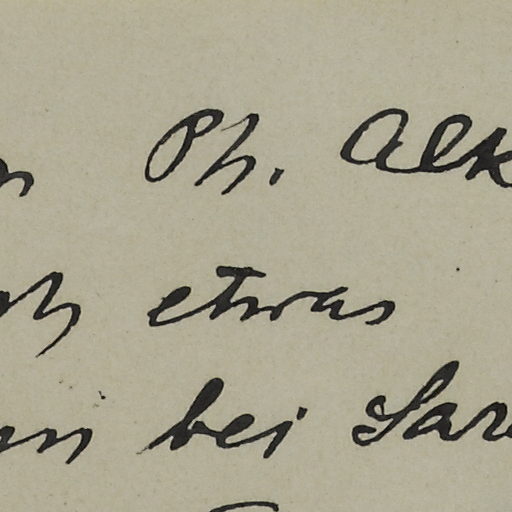 Ph. Alk
etwas
bei Sar